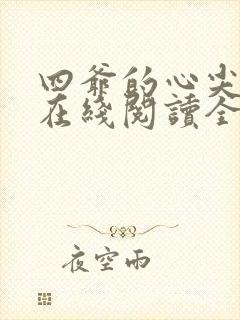 四爺的心尖
在綫閱讀全
夜空雨